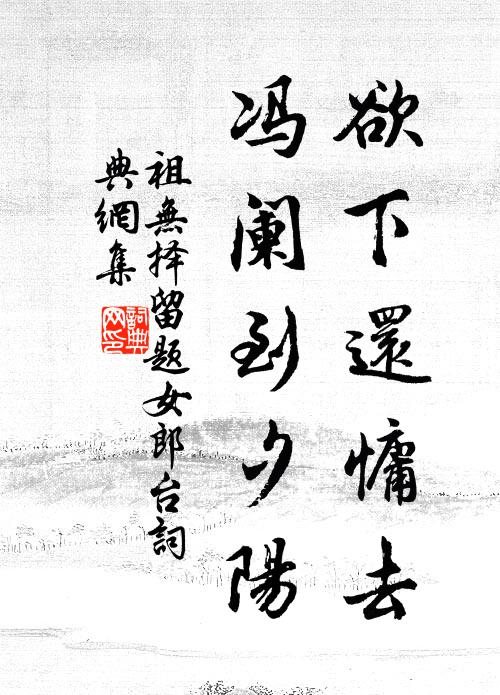 欲下還慵去
冯阑到夕陽
祖無择留题女郎台詞
典網集
詞典
网印